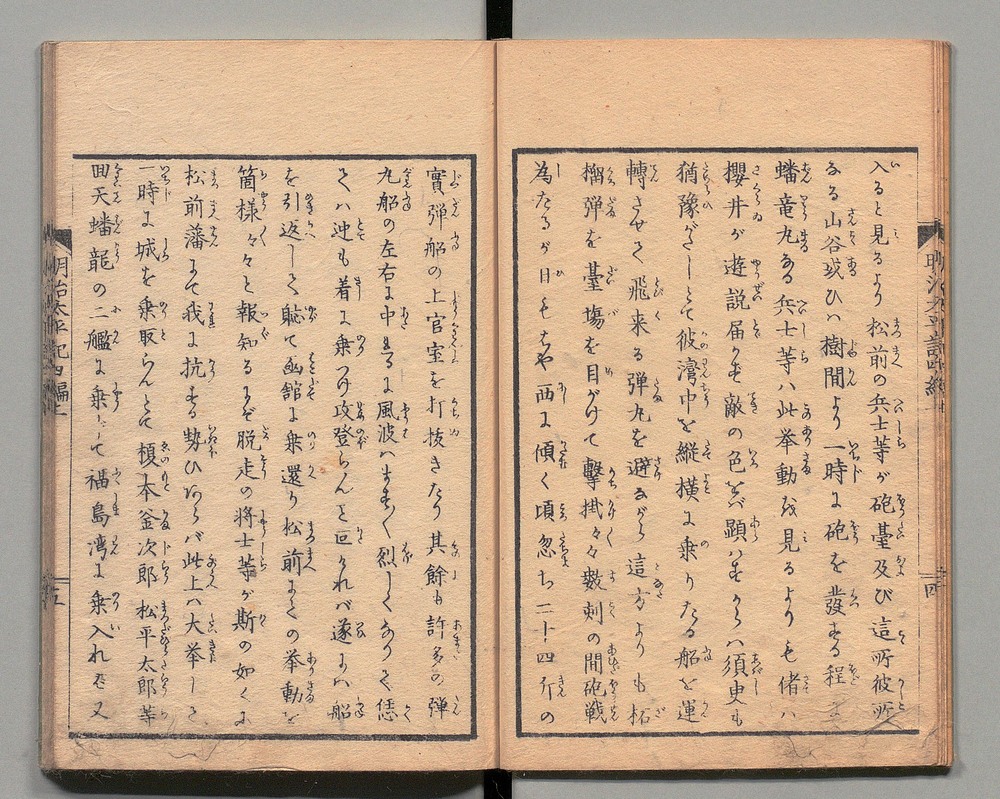 入ると見るより松前の兵士等が砲臺及び這所彼所
なる山谷或ひハ樹間より一時に砲を發する程に
蟠竜丸なる兵士等ハ此挙動を見るよりも偖ハ
櫻井が遊説届かず敵の色をバ顕ハせしからハ須臾も
猶豫がたしとて彼湾中を縦横に乗りたる船を運
轉させて飛来る弾丸を避ながら這方よりも柘
榴弾を臺塲を目がけて撃掛々々數刻の間砲戦
為たるが日もはや西に傾く頃忽ち二十四斤の
實弾船の上官室を打抜きたり其餘も許多の弾
丸船の左右に中するに風波ハます〱烈しくなりて恁
てハ迚も着に乗つけ攻登らんこと叵かれバ遂にハ船
を引返して軈て函舘に乗還り松前にての挙動を
箇様々々と報知るにぞ脱走の将士等が斯の如くに
松前藩にて我に抗する勢ひあらバ此上ハ大挙して
一時に城を乗取らんとて榎本釜次郎松平太郎等
回天蟠龍の二艦に乗じて福島湾に乗入れバ又
明治太平記四編上